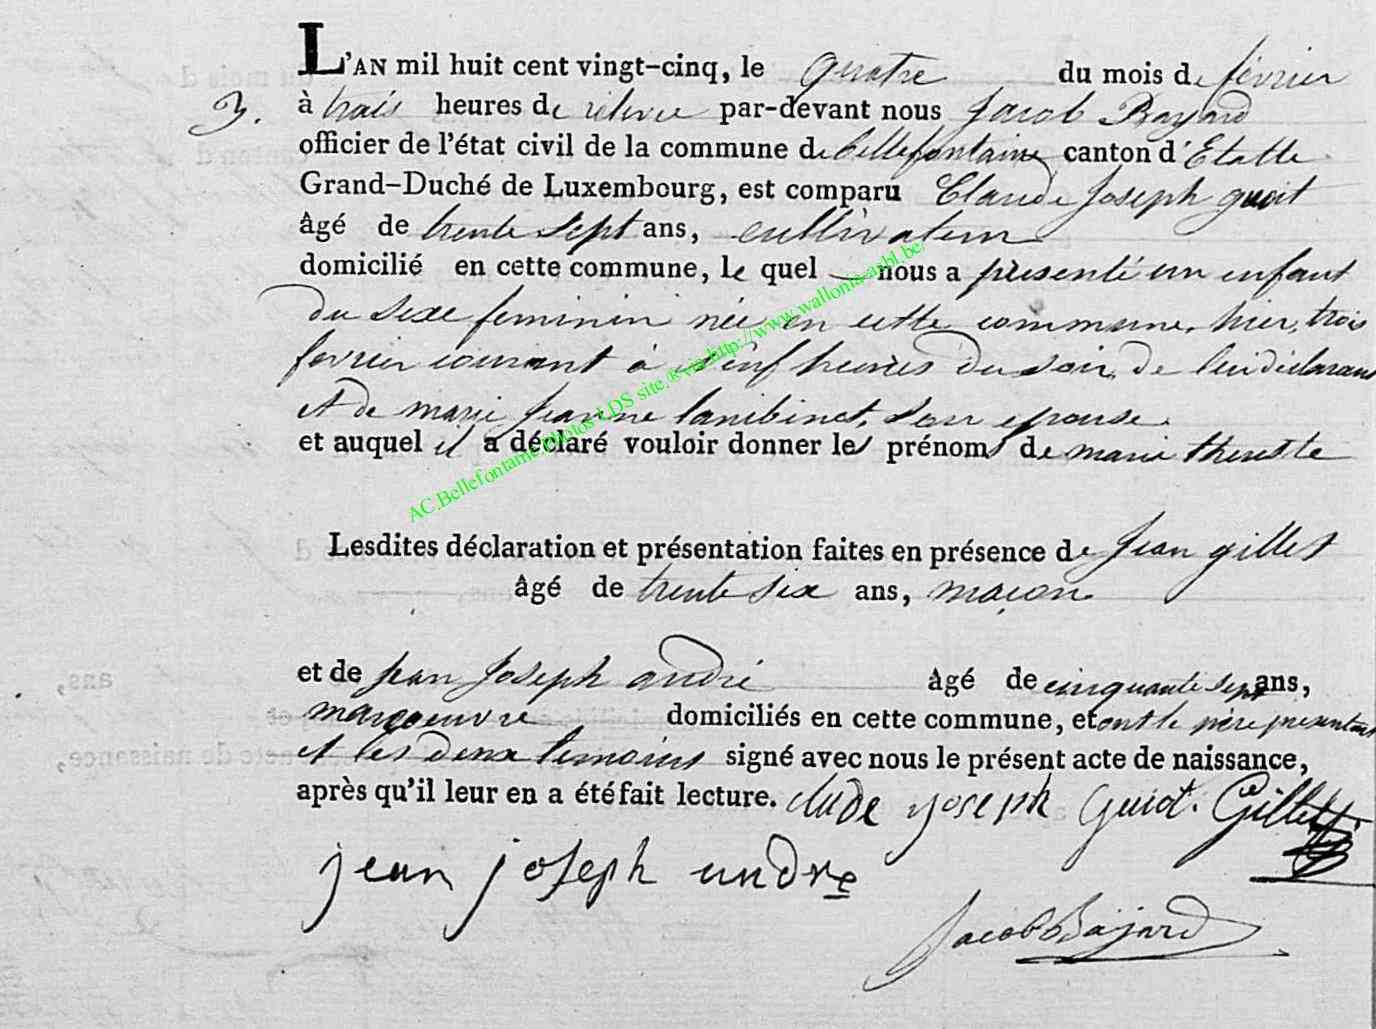 L'AN mil huit cent vingt-cinq, le quatre du mois de février
3. à trois heures de relevée par-devant nous Jacob Bayard
officier de l'état civil de la commune de Bellefontaine canton d'Etalle
Grand-Duché de Luxembourg, est comparu Claude Joseph guiot
âgé de trente sept ans, cultivateur
domicilié en cette commune, le quel nous a présenté un enfant
du sexe feminin née en cette commune, hier, trois
fevrier courant à neuf heures du soir, de lui déclarant
et de marie jeanne lambinet, son epouse.
et auquel il a déclaré vouloir donner les prénoms de marie therese
AC.Bellefontaine Photos LDS site, ® via http://www.wallonia-asbl.be/
Lesdites déclaration et présentation faites en présence de Jean gillet
âgé de trente six ans, maçon
et de jean Joseph andré âgé de cinquante sept ans,
manoeuvre domiciliés en cette commune, et ont le père presentant
et les deux temoins signé avec nous le présent acte de naissance,
après qu'il leur en a été fait lecture. clude joseph Guiot. Gillet
jean joseph undre
Jacob Bajard